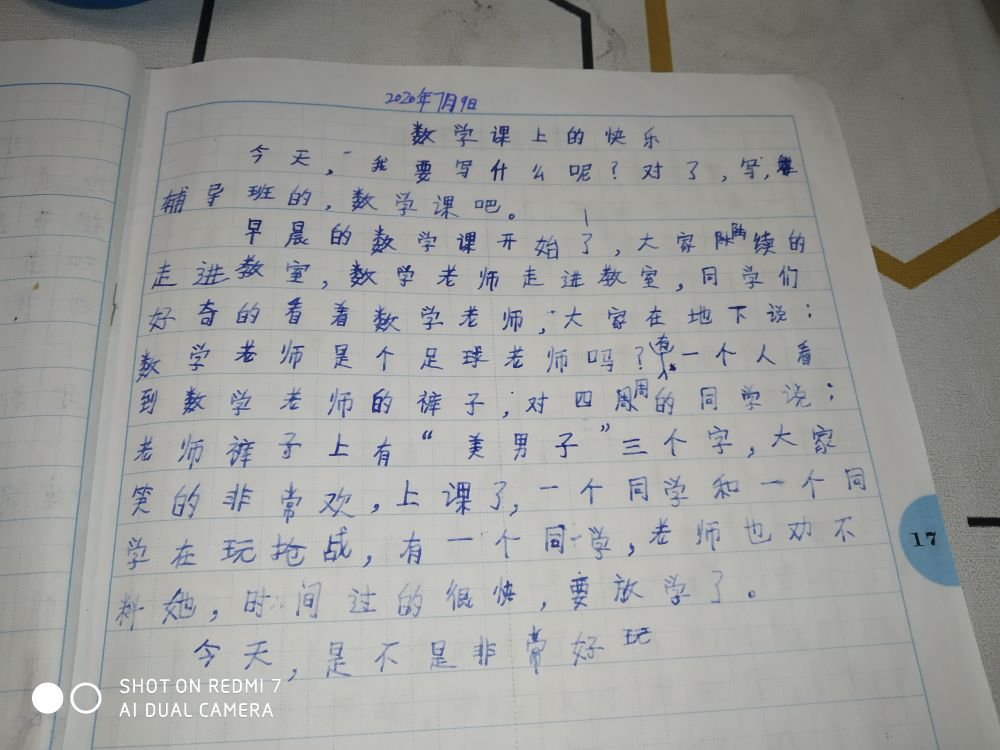 2020年7月9日
数学课上的快乐
今天，我要写什么呢？对了，写，
辅导班的，数学课吧。
早晨的数学课开始了，大家陆陆续的
走进教室，数学老师走进教室，同学们
好奇的看着数学老师，大家在地下说：
数学老师是个足球老师吗？有一个人看
到数学老师的裤子，对四周周的同学说：
老师裤子上有“美男子”三个字，大家
笑的非常欢，上课了，一个同学和一个同
学在玩抢战，有一个同学，老师也劝不
料她，时间过的很快，要放学了。
今天，是不是非常好玩
17
SHOT ON REDMI 7
AI DUAL CAMERA